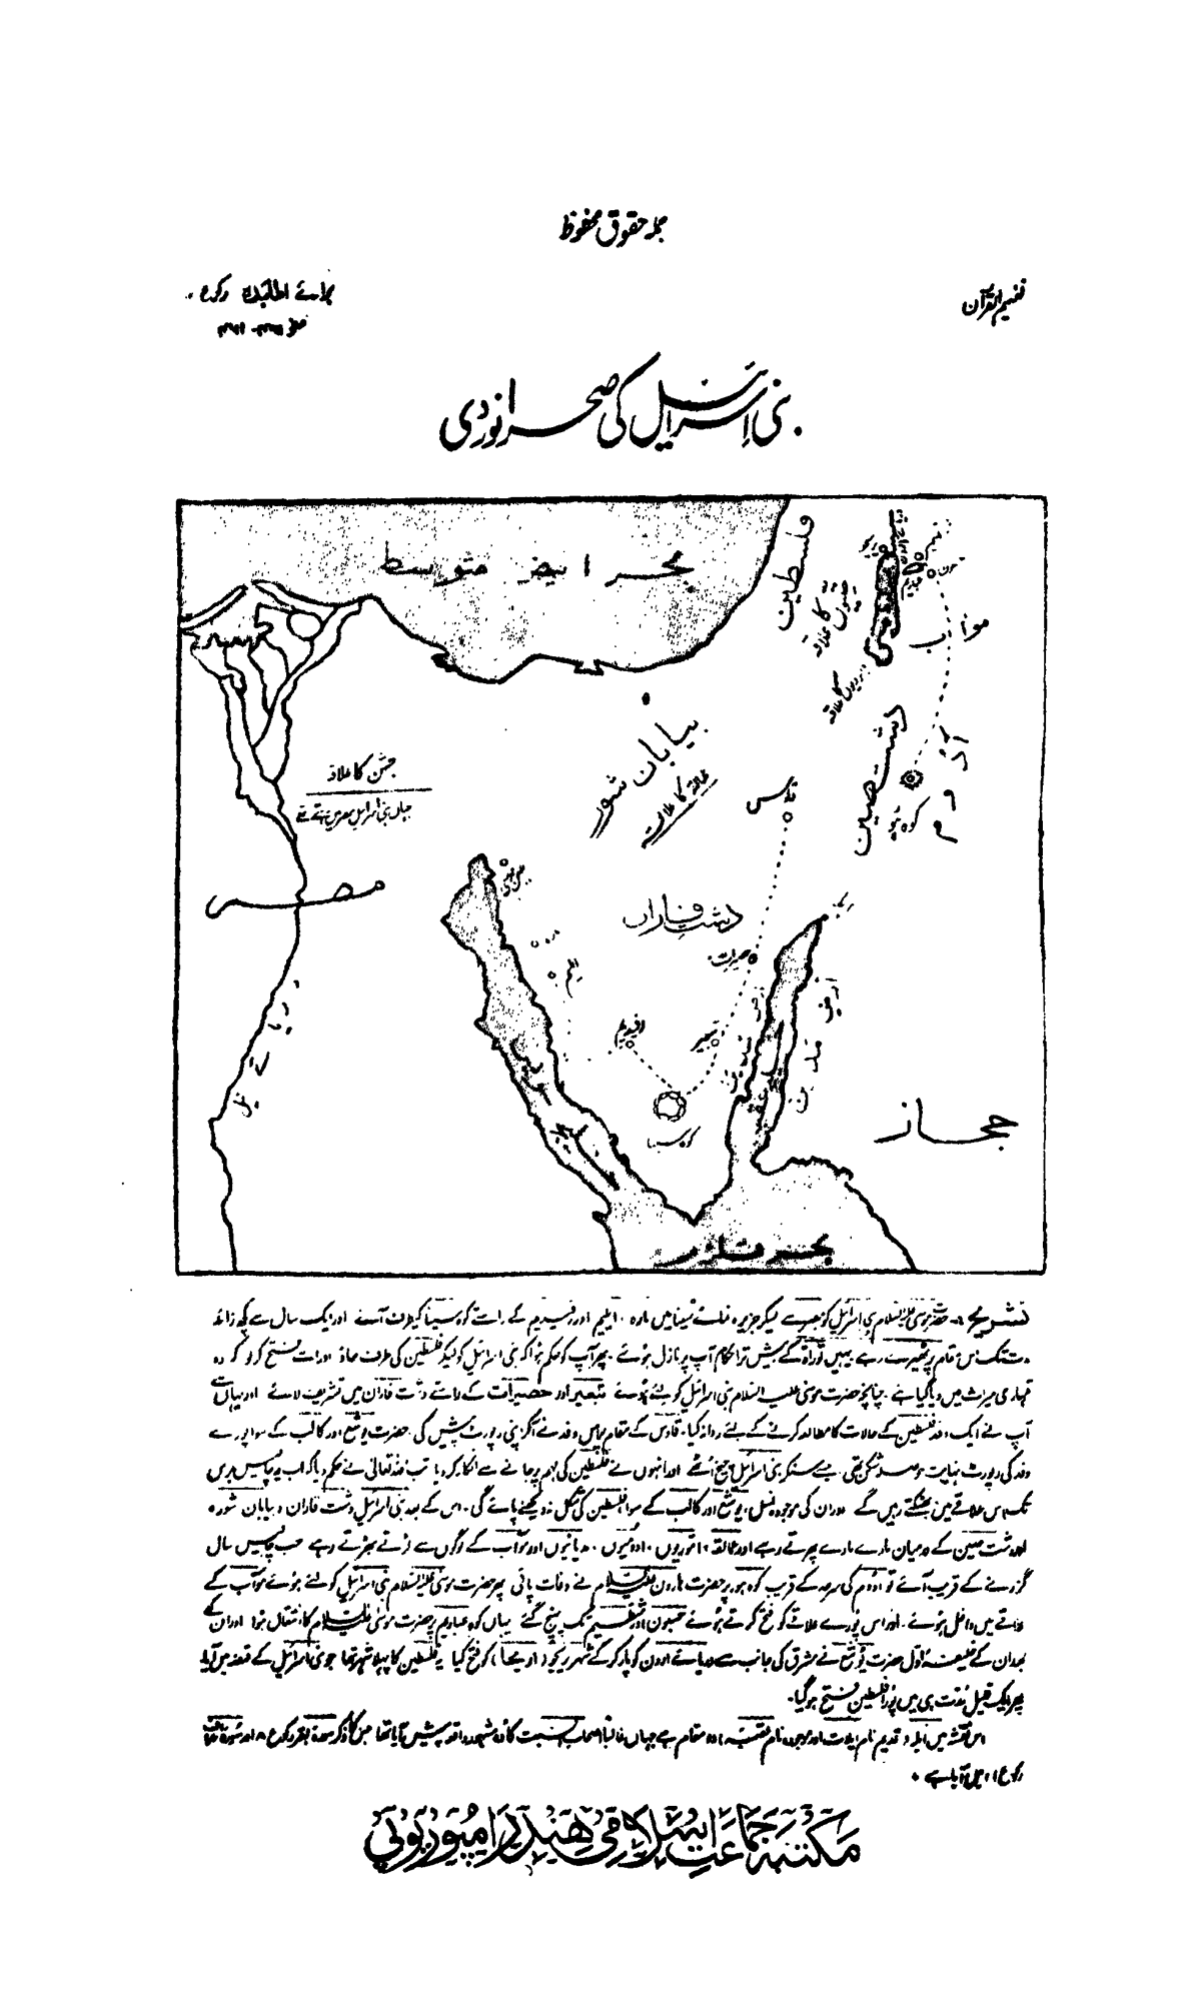 جملہ حقوق محفوظ
تفہیم القرآن
بنی اسرائیل کی صحرا نوردی
بحر ابیض متوسط
فلسطین
یریحو
حتیوں کا علاقہ
موآب
اموریوں کا علاقہ
بیابان شور
عمالقہ کا علاقہ
دشت صین
ادوم
کوہ ہور
قادس
جشن کا علاقہ
جہاں بنی اسرائیل مصر میں رہتے تھے
مصر
دشت فاران
حصیرات
ایلیم
رفیدیم
تبعیر
ارض مدین
دریائے نیل
کوہ سینا
حجاز
بحر قلزم
تشریح :۔ حضرت موسیٰ علیہ السلام بنی اسرائیل کو مصر سے لیکر جزیرہ نمائے سینا میں مارہ، ایلیم اور رفیدیم کے راستہ کوہ سینا کی طرف آئے اور ایک سال سے کچھ زائد
مدت تک اس مقام پر ٹھیرے رہے یہیں توراۃ کے بیشتر احکام آپ پر نازل ہوئے۔ پھر آپ کو حکم ہوا کہ بنی اسرائیل کو لیکر فلسطین کی طرف جاؤ اور اسے فتح کرلو کہ وہ
تمہاری میراث میں دیا گیا ہے۔ چنانچہ حضرت موسیٰ علیہ السلام بنی اسرائیل کو لئے ہوئے تبعیر اور حصیرات کے راستے دشت فاران میں تشریف لائے اور یہاں سے
آپ نے ایک وفد فلسطین کے حالات کا مطالعہ کرنے کے لئے روانہ کیا۔ قادس کے مقام پر اس وفد نے آکر اپنی رپورٹ پیش کی۔ حضرت یوشع اور کالب کے سوا پورے
وفد کی رپورٹ نہایت حوصلہ شکن تھی جسے سنکر بنی اسرائیل چیخ اٹھے اور انہوں نے فلسطین کی مہم پر جانے سے انکار کر دیا تب اللہ تعالیٰ نے حکم دیا کہ اب یہ چالیس برس
تک اس علاقے میں بھٹکتے رہیں گے اور ان کی موجودہ نسل، یوشع اور کالب کے سوا فلسطین کی شکل نہ دیکھنے پائے گی۔ اس کے بعد بنی اسرائیل دشت فاران، بیابان شور
اور دشت صین کے درمیان مارے مارے پھرتے رہے اور عمالقہ، اموریوں، ادومیوں، مدیانیوں اور موآب کے لوگوں سے لڑتے بھڑتے رہے جب چالیس سال
گزرنے کے قریب آئے تو ادوم کی سرحد کے قریب کوہ ہور پر حضرت ہارون علیہ السلام نے وفات پائی پھر حضرت موسیٰ علیہ السلام بنی اسرائیل کو لئے ہوئے موآب کے
علاقے میں داخل ہوئے۔ اور اس پورے علاقے کو فتح کرتے ہوئے حسبون اور شطیم تک پہنچ گئے یہاں کوہ عباریم پر حضرت موسیٰ علیہ السلام کا انتقال ہوا اور ان کے
بعد ان کے خلیفہ اول حضرت یوشع نے مشرق کی جانب سے دریائے اردن کو پار کر کے شہر یریحو (اریحا) کو فتح کیا یہ فلسطین کا پہلا شہر تھا جو بنی اسرائیل کے قبضہ میں آیا
پھر ایک قلیل مدت ہی میں پورا فلسطین فتح ہوگیا۔
اس نقشہ میں ایلہ (قدیم نام ایلات اور موجودہ نام عقبہ) وہ مقام ہے جہاں غالباً اصحاب السبت کا وہ مشہور واقعہ پیش آیا تھا جس کا ذکر سورۃ البقر رکوع ۸ اور سورۃ
رکوع میں آیا ہے۔
مکتبہ جماعت اسلامی ھند رامپور یوپی